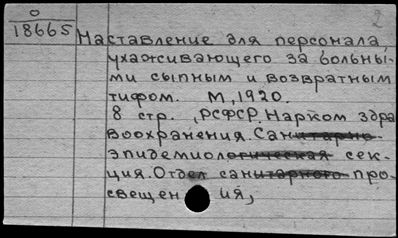 0
18665
2
Наставление для персонала,
ухаживающего за больны-
ми сыпным и возвратным
тифом. М, 1920.
8 стр., РСФСР. Нарком здра
воохранения. Санитарно-
эпидемиологическая сек-
ция. Отдел санитарного про-
свещения,